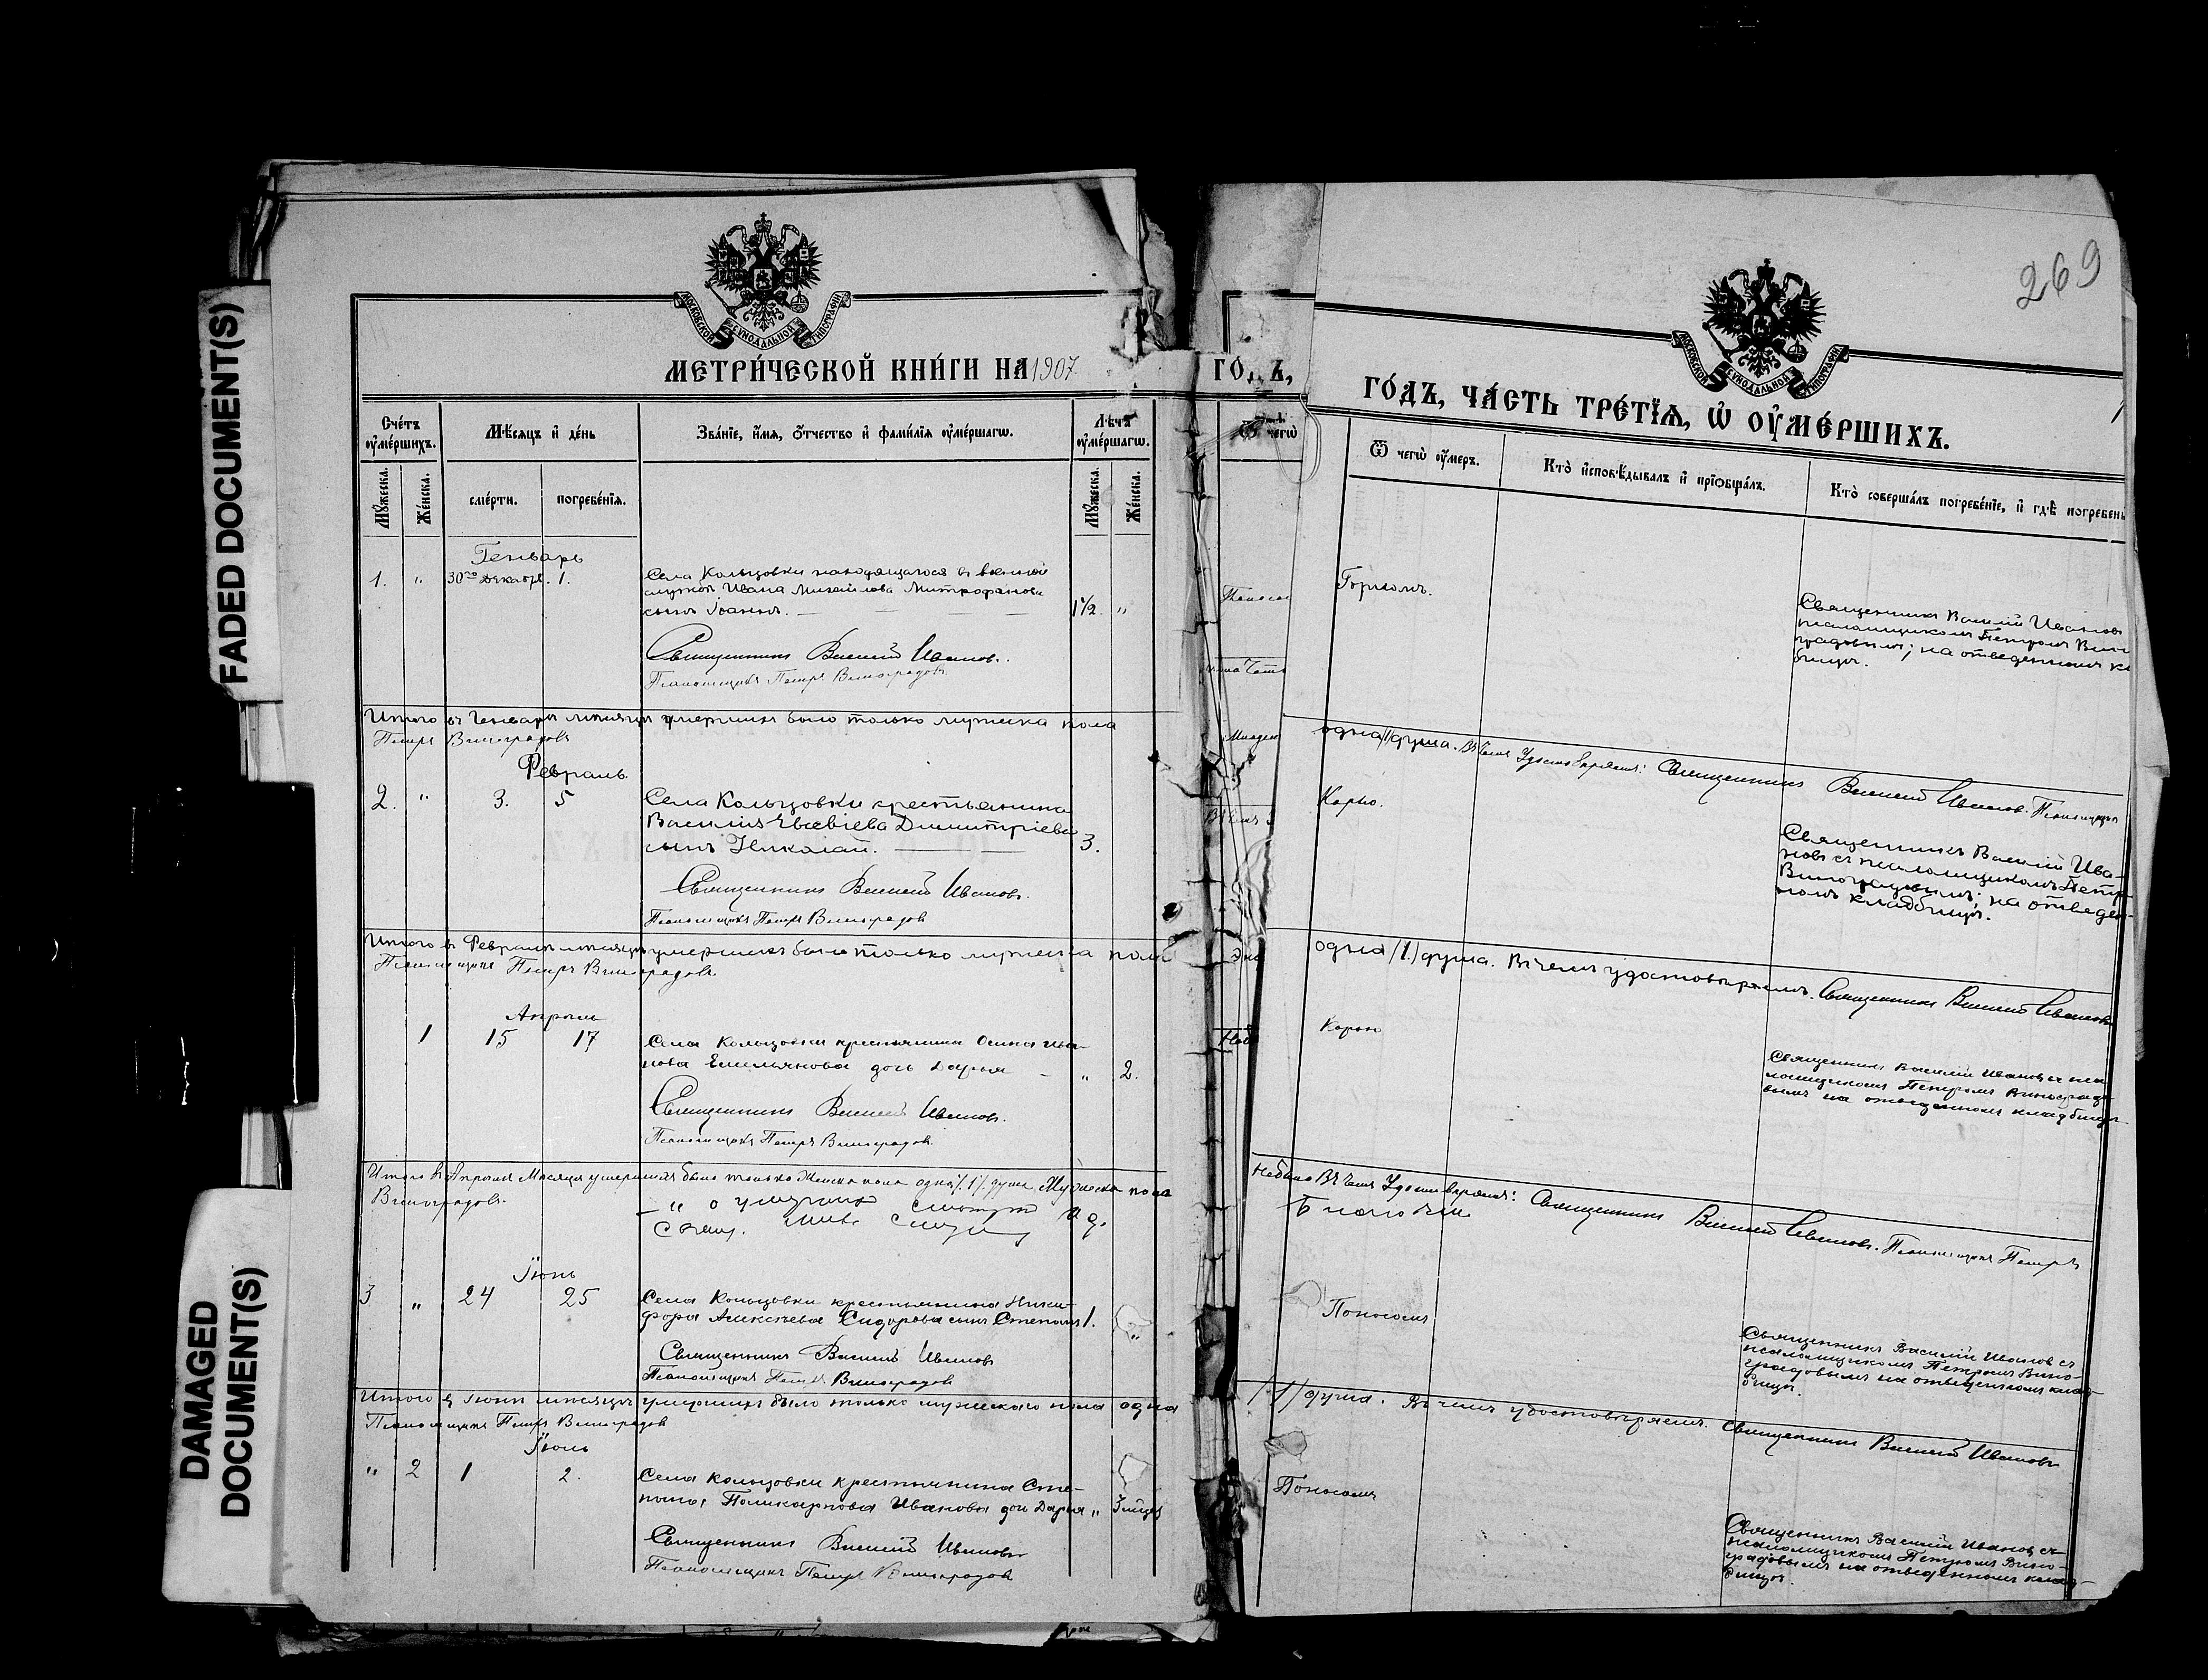 FADED DOCUMENT(S)
DAMAGED
DOCUMENT(S)
МОСКОВСКОЙ СѴНОДАЛЬНОЙ ТИПОГРАФІИ
МЕТРИ́ЧЕСКОЙ КНИ́ГИ НА 1907
Сче́тъ ᲂу҆ме́ршихъ.
Мѣ́сяцъ и҆ де́нь
Зва́нїе, и҆́мя, ѻ҆́тчество и҆ фами́лїя ᲂу҆ме́ршагѡ.
Лѣ́та ᲂу҆ме́ршагѡ.
Мꙋ́жеска.
Же́нска.
сме́рти.
погребе́нїя.
Мꙋ́жеска.
Же́нска.
Генварь
1. " 30го Декабр. 1.
Села Кольцовки находящагося въ военной
службѣ Ивана Михайлова Митрофанова
сынъ Іоаннъ. 1 1/2 "
Священникъ Василій Ивановъ.
Псаломщикъ Петръ Виноградовъ
Итого въ Генварѣ мѣсяцѣ умершихъ было только мужеска пола
Петръ Виноградовъ
Февраль
2. " 3. 5
Села Кольцовки крестьянина
Василія Евсевіева Димитріева
сынъ Николай. 3.
Священникъ Василій Ивановъ.
Псаломщикъ Петръ Виноградов
Итого въ Февралѣ мѣсяцѣ умершихъ было только мужеска пола
Псаломщикъ Петръ Виноградовъ
Апрѣль
1 15 17
Села Кольцовки крестьянина Осипа Ива-
нова Емельянова дочь Дарья " 2.
Священникъ Василій Ивановъ.
Псаломщикъ Петръ Виноградов.
Итого въ Апрѣлѣ Мѣсяцѣ умершихъ было только Женска пола одна /1/ душа, Мужеска пола
Виноградовъ.
Іюнь
3 " 24 25
Села Кольцовки крестьянина Ники-
фора Алексѣева Сидорова сынъ Степанъ 1. "
Священникъ Василій Ивановъ
Псаломщикъ Петръ Виноградов
Итого въ Іюнѣ мѣсяцѣ умершихъ было только мужескаго пола одна
Псаломщикъ Петръ Виноградов
Іюль
" 2 1 2.
Села Кольцовки крестьянина Сте-
пана Поликарпова Иванова дочь Дарья "
Священникъ Василій Ивановъ
Псаломщикъ Петръ Виноградов
269
МОСКОВСКОЙ СѴНОДАЛЬНОЙ ТИПОГРАФІИ
ГО́ДЪ, ЧА́СТЬ ТРЕ́ТЇѦ, Ѡ҆ ОУ҆МЕ́РШИХЪ.
Ѿ чегѡ̀ ᲂу҆́меръ.
Кто̀ и҆сповѣ́дывалъ и҆ прїѡбща́лъ.
Кто̀ соверша́лъ погребе́нїе, и҆ гдѣ̀ погребены
Горломъ.
Священникъ Василій Ивановъ
псаломщикомъ Петромъ Вино
градовымъ; на отведенномъ кл
бищѣ.
одна /1/ душа. Въ чемъ Удостовѣряемъ: Священникъ Василій Ивановъ. Псаломщикъ
Корью.
Священникъ Василій Ива-
новъ съ псаломщикомъ Петр
Виноградовымъ; на отведен-
номъ кладбищѣ.
одна /1./ душа. Въ чемъ удостовѣряемъ. Священникъ Василій Ивановъ
Корью
Священникъ Василій Ивановъ съ пса
ломщикомъ Петромъ Виноградо-
вымъ на отведенномъ кладбищѣ
небыло Въ чемъ Удостовѣряемъ: Священникъ Василій Ивановъ. Псаломщикъ Петръ
Поносомъ
Священникъ Василій Ивановъ съ
псаломщикомъ Петромъ Вино-
градовымъ на отведенномъ клад-
бищѣ.
/1/ душа. Въ чемъ удостовѣряемъ. Священникъ Василій Ивановъ
Поносомъ
Священникъ Василій Ивановъ съ
псаломщикомъ Петромъ Вино-
градовымъ на отведенномъ клад-
бищѣ.